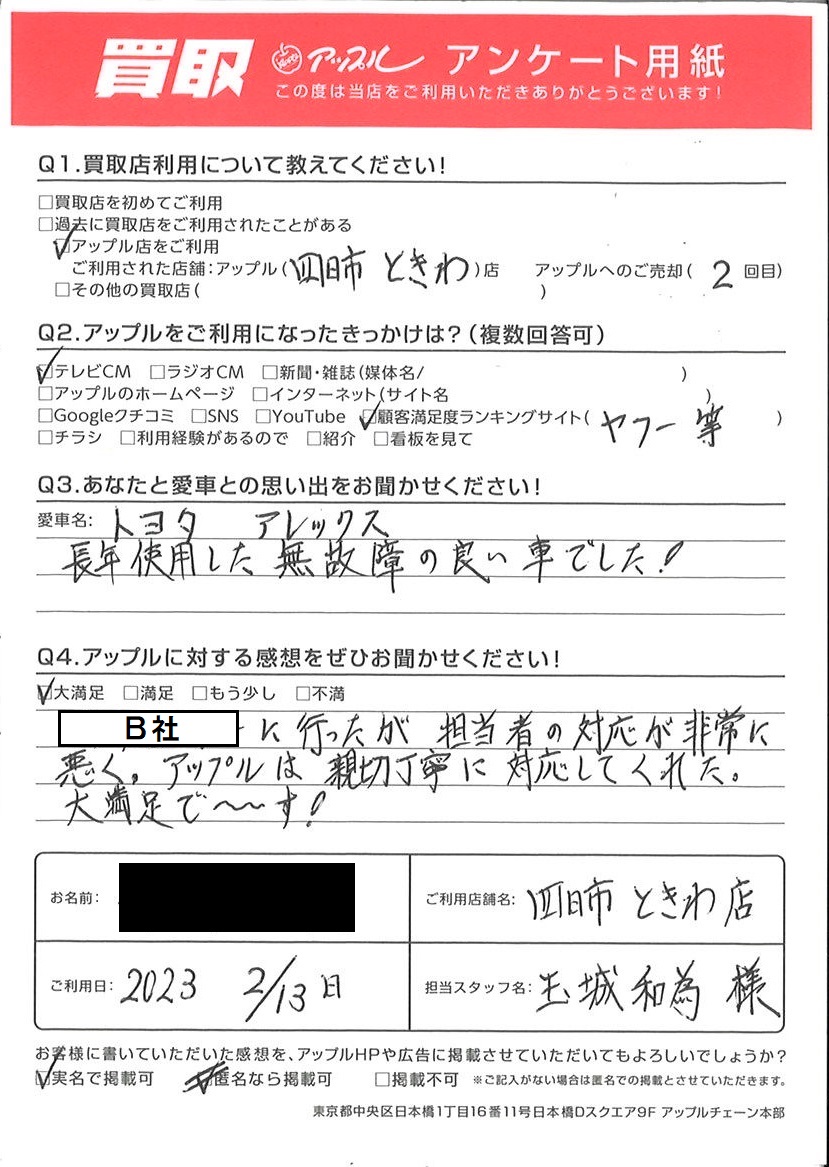 買取 アップル アンケート用紙
この度は当店をご利用いただきありがとうございます!
Q1.買取店利用について教えてください!
□買取店を初めてご利用
□過去に買取店をご利用されたことがある
☑アップル店をご利用
ご利用された店舗:アップル(四日市 ときわ)店 アップルへのご売却(2回目)
□その他の買取店( )
Q2.アップルをご利用になったきっかけは?(複数回答可)
☑テレビCM □ラジオCM □新聞・雑誌(媒体名/ )
□アップルのホームページ □インターネット(サイト名 )
□Googleクチコミ □SNS □YouTube ☑顧客満足度ランキングサイト(ヤフー等)
□チラシ □利用経験があるので □紹介 □看板を見て
Q3.あなたと愛車との思い出をお聞かせください!
愛車名:トヨタ アレックス
長年使用した無故障の良い車でした!
Q4.アップルに対する感想をぜひお聞かせください!
☑大満足 □満足 □もう少し □不満
B社 ーに行ったが 担当者の対応が非常に
悪く。アップルは親切丁寧に対応してくれた。
大満足で〜〜す!
お名前: ご利用店舗名:四日市 ときわ店
ご利用日:2023 2/13日 担当スタッフ名:玉城和為 様
お客様に書いていただいた感想を、アップルHPや広告に掲載させていただいてもよろしいでしょうか?
☑実名で掲載可 ☑匿名なら掲載可 □掲載不可 ※ご記入がない場合は匿名での掲載とさせていただきます。
東京都中央区日本橋1丁目16番11号日本橋Dスクエア9F アップルチェーン本部